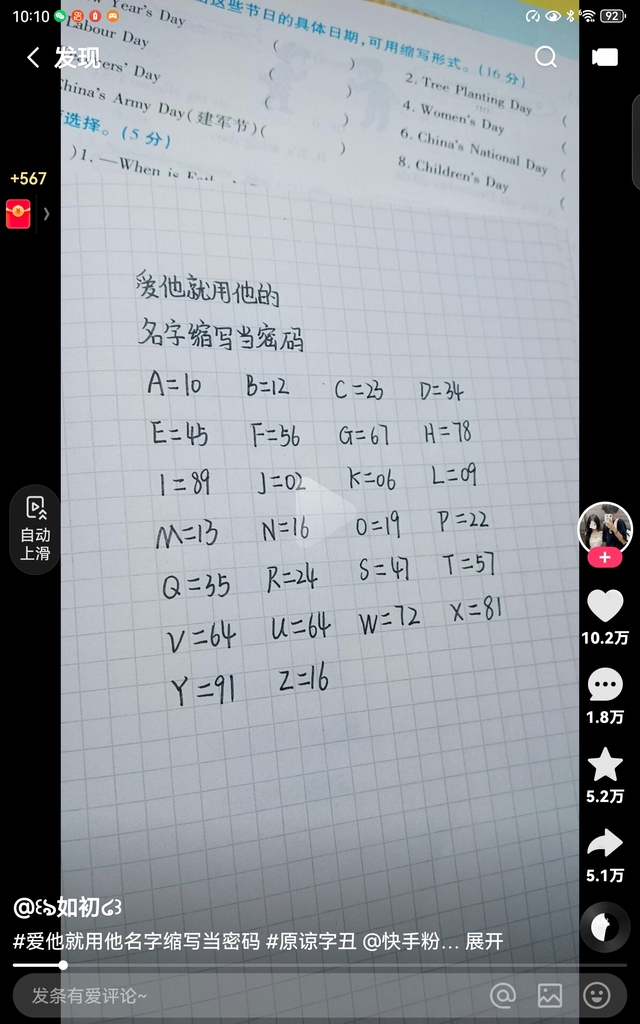 10:10
92
发现
Year's Day
这些节日的具体日期,可用缩写形式。(16 分)
Labour Day ( )
2. Tree Planting Day (
Day ( )
4. Women's Day (
China's Army Day(建军节)( )
6. China's National Day (
选择。(5 分)
8. Children's Day (
)1. —When is
+567
爱他就用他的
名字缩写当密码
A=10 B=12 C=23 D=34
E=45 F=56 G=67 H=78
I=89 J=02 K=06 L=09
M=13 N=16 O=19 P=22
Q=35 R=24 S=47 T=57
V=64 U=64 W=72 X=81
Y=91 Z=16
自动
上滑
10.2万
1.8万
5.2万
5.1万
#爱他就用他名字缩写当密码 #原谅字丑 @快手粉... 展开
发条有爱评论~